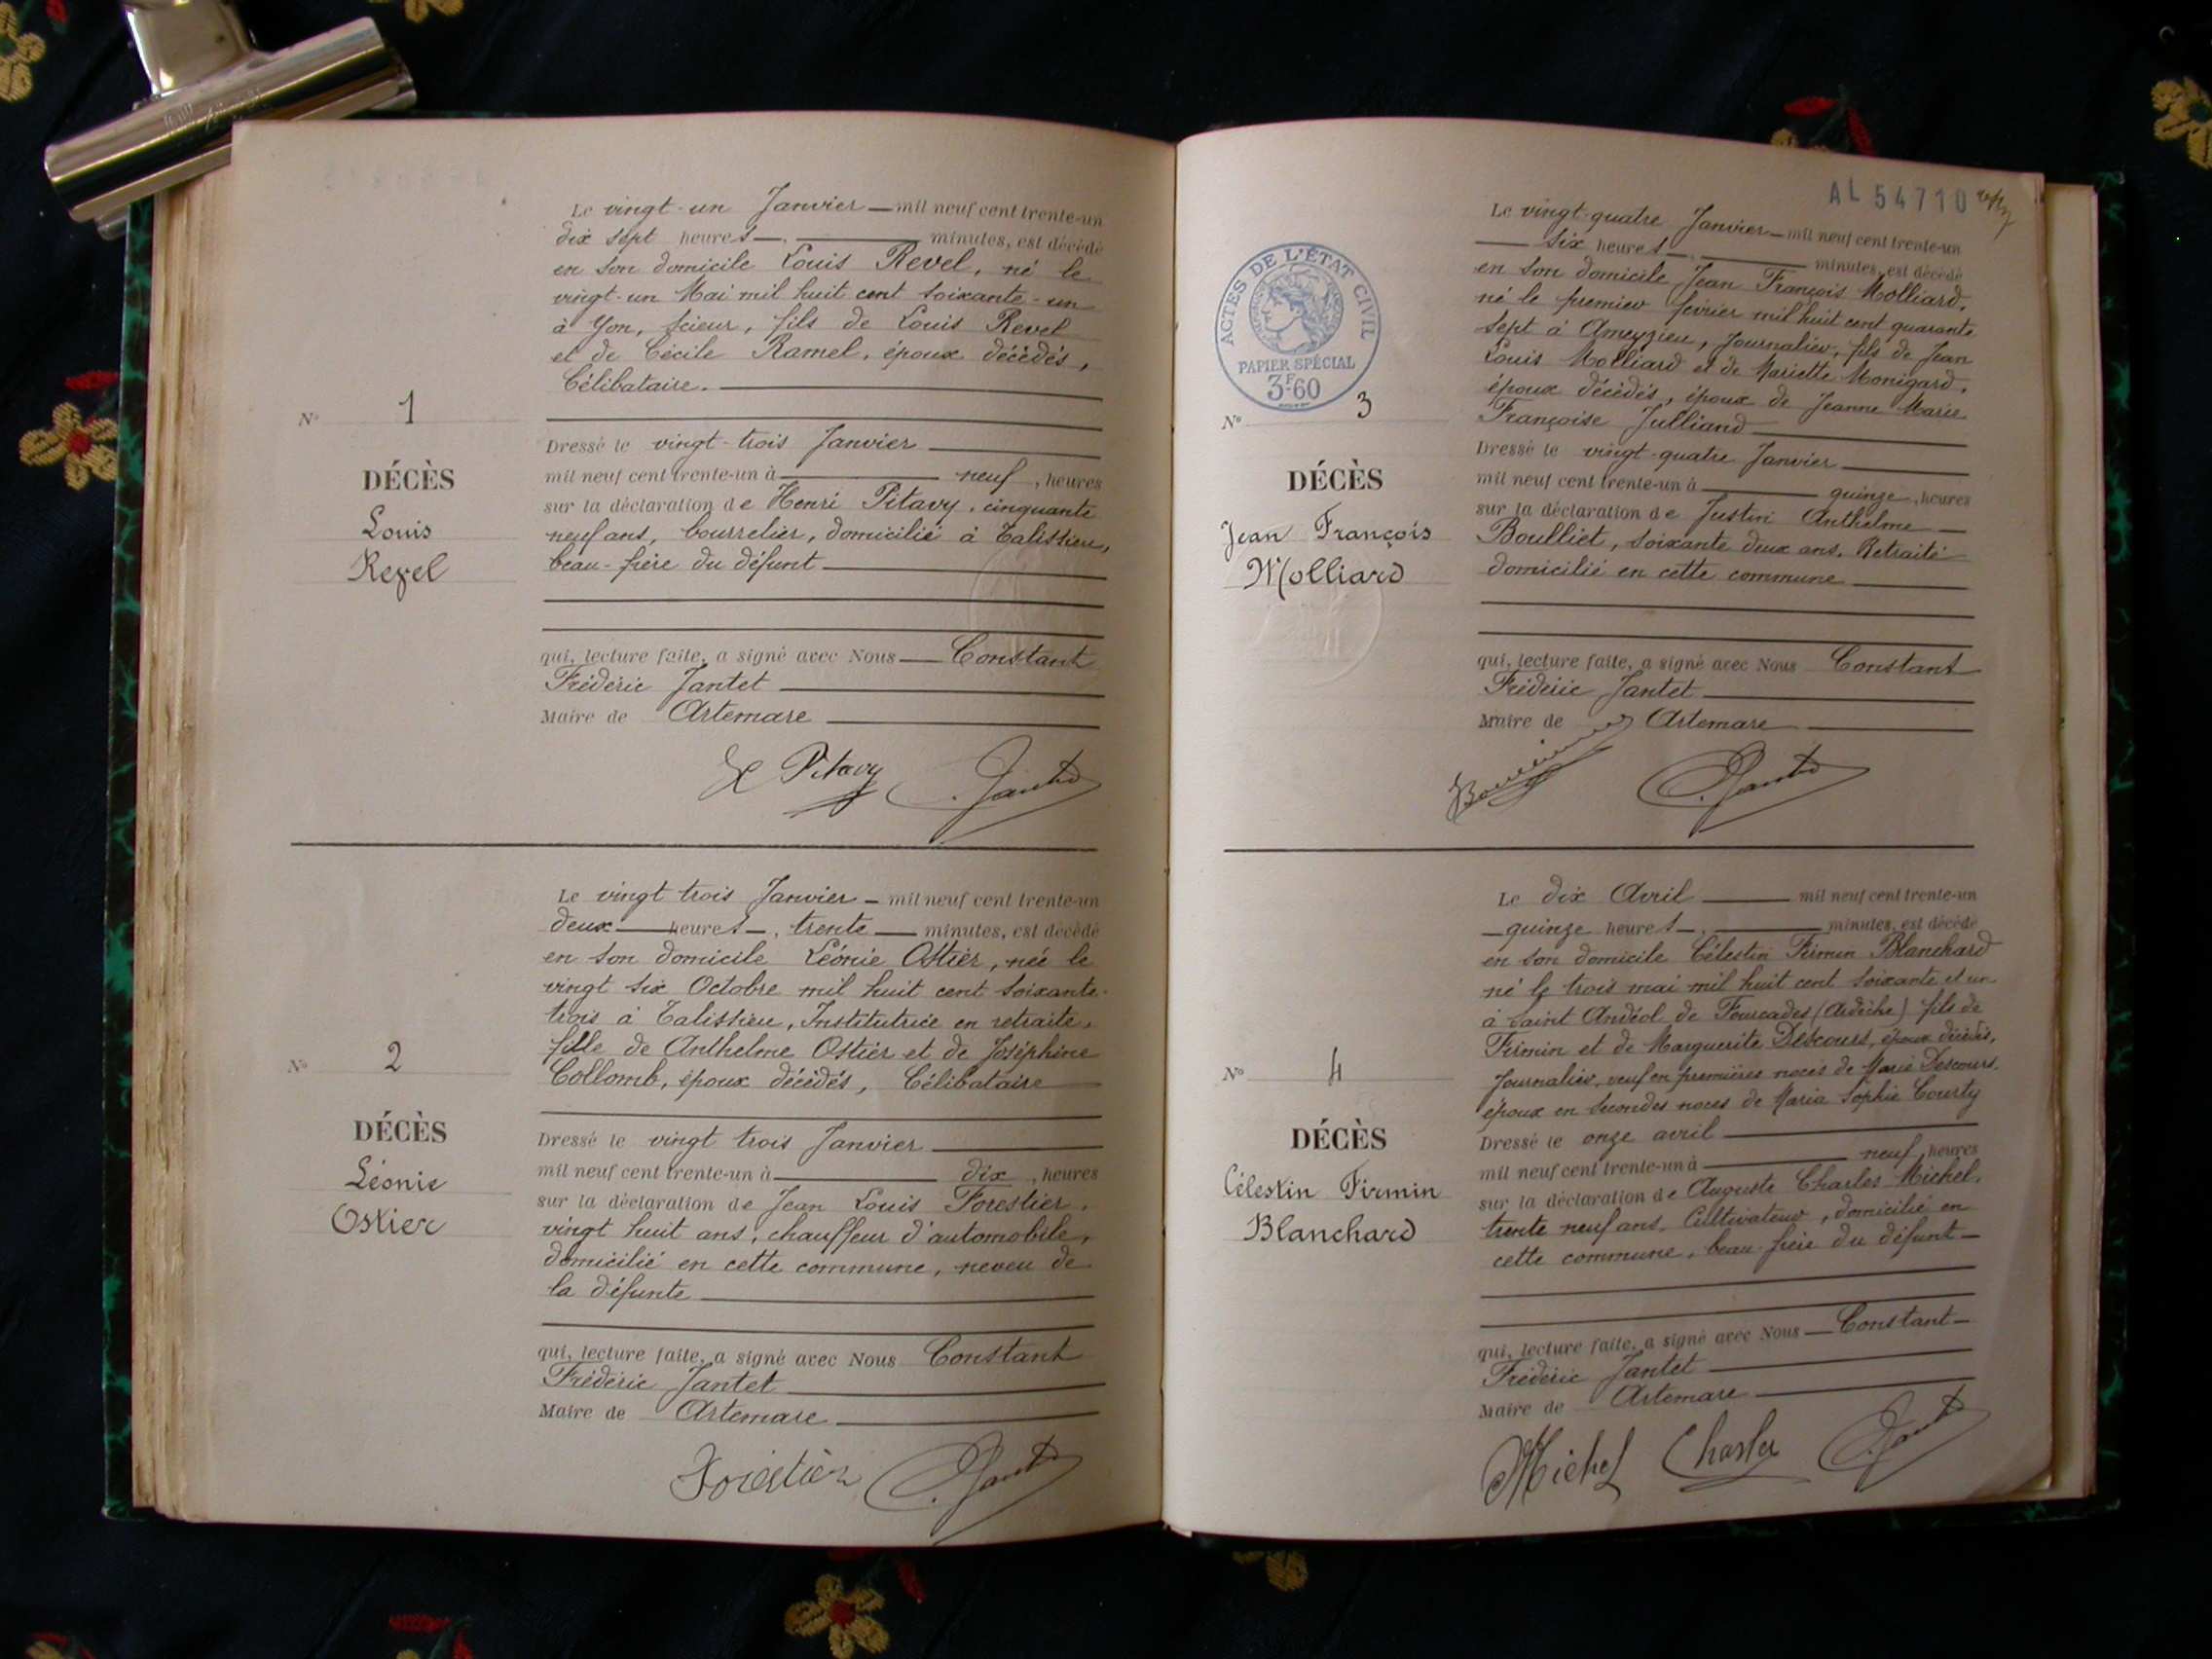 Le vingt-un Janvier mil neuf cent trente-un
dix sept heures minutes, est décédé
en son domicile Louis Revel, né le
vingt-un Mai mil huit cent soixante-un
à Yon, scieur, fils de Louis Revel
et de Cécile Ramel, époux décédés,
Célibataire.
N° 1
DÉCÈS
Louis
Revel
Dressé le vingt-trois Janvier
mil neuf cent trente-un à neuf, heures
sur la déclaration de Henri Pitavy, cinquante
neuf ans, bourrelier, domicilié à Talissieu,
beau-frère du défunt
qui, lecture faite, a signé avec Nous Constant
Frédéric Jantet
Maire de Artemare
H Pitavy Jantet
Le vingt trois Janvier mil neuf cent trente-un
deux heures, trente minutes, est décédé
en son domicile Léonie Ostier, née le
vingt six Octobre mil huit cent soixante-
trois à Talissieu, Institutrice en retraite,
fille de Anthelme Ostier et de Joséphine
Collomb, époux décédés, Célibataire
N° 2
DÉCÈS
Léonie
Ostier
Dressé le vingt trois Janvier
mil neuf cent trente-un à dix, heures
sur la déclaration de Jean Louis Forestier,
vingt huit ans, chauffeur d'automobile,
domicilié en cette commune, neveu de
la défunte
qui, lecture faite, a signé avec Nous Constant
Frédéric Jantet
Maire de Artemare
Forestier Jantet
AL 54710
ACTES DE L'ÉTAT CIVIL
PAPIER SPÉCIAL
3F60
Le vingt-quatre Janvier mil neuf cent trente-un
six heures minutes, est décédé
en son domicile Jean François Molliard,
né le premier février mil huit cent quarante
sept à Ameyzieu, Journalier, fils de Jean
Louis Molliard et de Mariette Monigard,
époux décédés, époux de Jeanne Marie
Françoise Julliand
N° 3
DÉCÈS
Jean François
Molliard
Dressé le vingt-quatre Janvier
mil neuf cent trente-un à quinze, heures
sur la déclaration de Justin Anthelme
Boulliet, soixante deux ans, Retraité
domicilié en cette commune
qui, lecture faite, a signé avec Nous Constant
Frédéric Jantet
Maire de Artemare
Jantet
Le dix Avril mil neuf cent trente-un
quinze heures minutes, est décédé
en son domicile Célestin Firmin Blanchard
né le trois mai mil huit cent soixante et un
à Saint Andéol de Fourcades (Ardèche) fils de
Firmin et de Marguerite Descours, époux décédés,
Journalier, veuf en premières noces de Marie Descours,
époux en secondes noces de Maria Sophie Courty
N° 4
DÉCÈS
Célestin Firmin
Blanchard
Dressé le onze avril
mil neuf cent trente-un à neuf, heures
sur la déclaration de Auguste Charles Michel,
trente neuf ans, Cultivateur, domicilié en
cette commune, beau-frère du défunt
qui, lecture faite, a signé avec Nous Constant
Frédéric Jantet
Maire de Artemare
Michel Charles Jantet